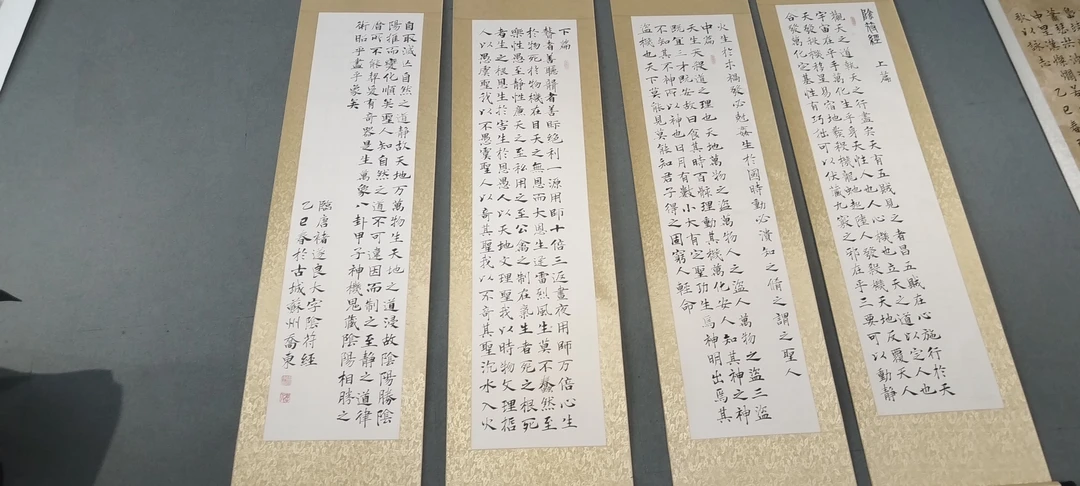 陰符經 上篇
觀天之道執天之行盡矣天有五賊見之者昌五賊在心施行於天
宇宙在乎手萬化生乎身天性人也人心機也立天之道以定人也
天發殺機移星易宿地發殺機龍蛇起陸人發殺機天地反覆天人
合發萬化定基性有巧拙可以伏藏九竅之邪在乎三要可以動靜
火生於木禍發必尅姦生於國時動必潰知之脩之謂之聖人
中篇
天生天殺道之理也天地萬物之盜萬物人之盜人萬物之盜三盜
既宜三才既安故曰食其時百骸理動其機萬化安人知其神之神
不知其不神所以神也日月有數小大有定聖功生焉神明出焉其
盜機也天下莫能見莫能知君子得之固窮人輕命
下篇
瞽者善聽聾者善眎絕利一源用師十倍三返晝夜用師万倍心生
於物死於物機在目天之無恩而大恩生迅雷烈風生莫不蠢然至
樂性愚至靜性廉天之至私用之至公禽之制在氣生者死之根死
者生之根恩生於害生於恩愚人以天地文理聖我以時物文理哲
人以愚虞聖我以不愚虞聖人以奇其聖我以不奇其聖沉水入火
自取滅亡自然之道靜故天地万萬物生天地之道浸故陰陽勝陰
陽推而變化順矣聖人知自然之道不可違因而制之至靜之道律
曆所不能契爰有奇器是生萬象八卦甲子神機鬼藏陰陽相勝之
術昭乎盡乎象矣
臨唐褚遂良大字陰符經
乙巳春於古城蘇州喬東
歌以詠志